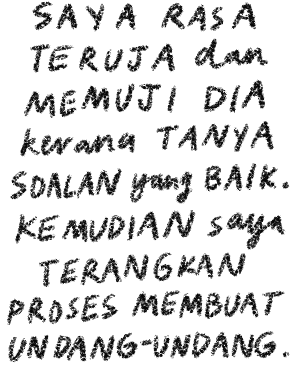 SAYA RASA
TERUJA dan
MEMUJI DIA
kerana TANYA
SOALAN yang BAIK.
KEMUDIAN saya
TERANGKAN
PROSES MEMBUAT
UNDANG-UNDANG.